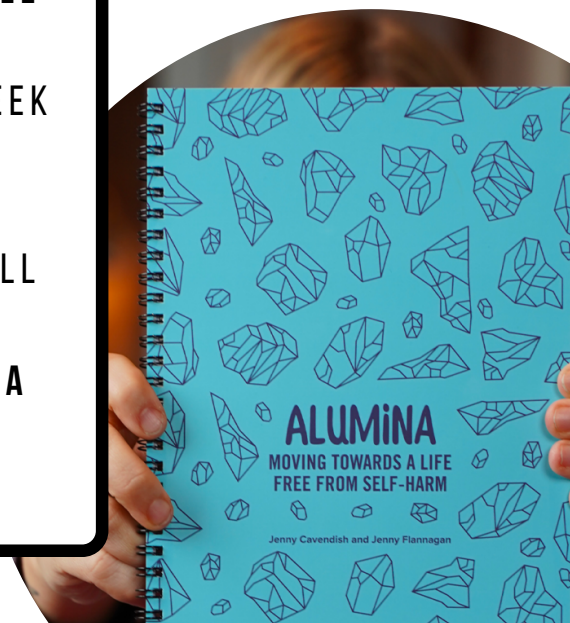 EEK
LL
A
ALUMiNA
MOVING TOWARDS A LIFE
FREE FROM SELF-HARM
Jenny Cavendish and Jenny Flannagan